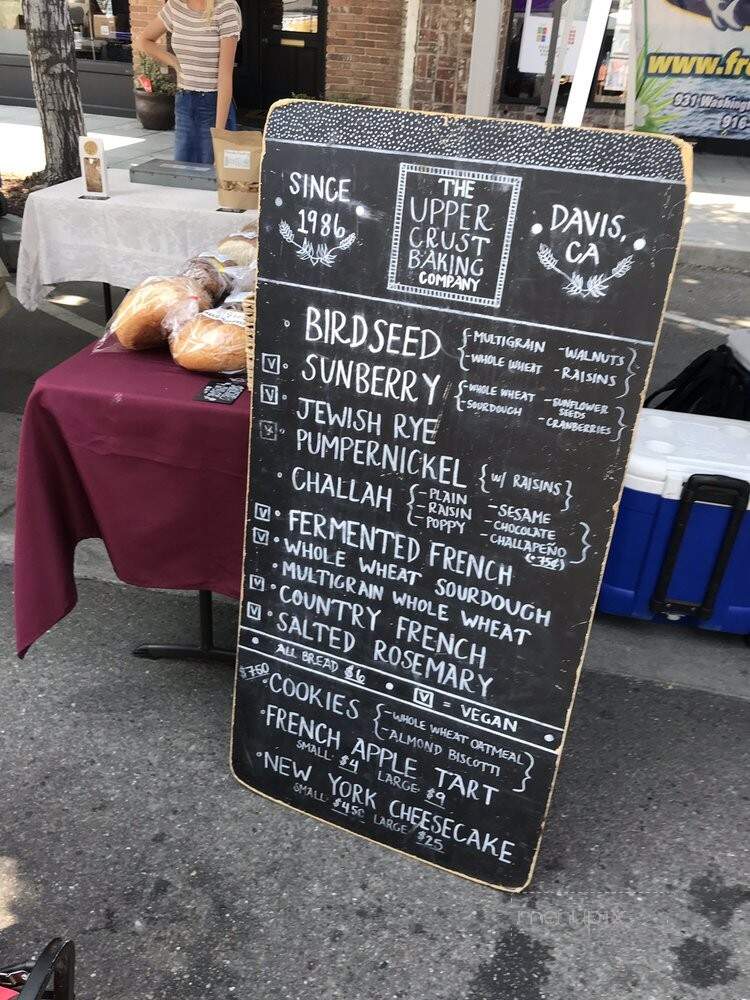 www.fr
931 Washing
916
SINCE
1986
THE
UPPER
CRUST
BAKING
COMPANY
DAVIS,
CA
• BIRDSEED {-MULTIGRAIN -WALNUTS
-WHOLE WHEAT -RAISINS}
V • SUNBERRY {-WHOLE WHEAT -SUNFLOWER SEEDS
-SOURDOUGH -CRANBERRIES}
V • JEWISH RYE
V • PUMPERNICKEL {W/ RAISINS}
• CHALLAH {-PLAIN -SESAME
-RAISIN -CHOCOLATE
-POPPY -CHALLAPEÑO
(+.75¢)}
V • FERMENTED FRENCH
V • WHOLE WHEAT SOURDOUGH
• MULTIGRAIN WHOLE WHEAT
V • COUNTRY FRENCH
V • SALTED ROSEMARY
• ALL BREAD $6 • V = VEGAN •
$7.50
• COOKIES {-WHOLE WHEAT OATMEAL
-ALMOND BISCOTTI}
• FRENCH APPLE TART
SMALL: $4 LARGE: $9
• NEW YORK CHEESECAKE
SMALL: $4.50 LARGE: $25
menupix